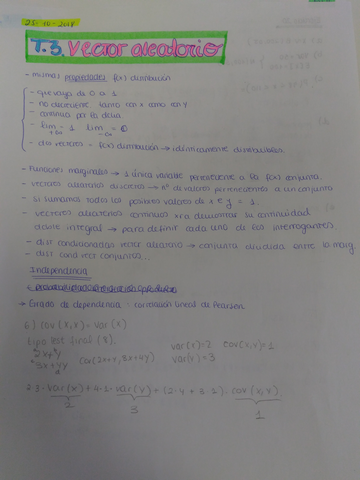 25-10-2018
T.3. Vector aleatorio
- mismas propiedades f(x) distribución
- que vaya de 0 a 1
- no decreciente tanto con x como con y
- continua por la dcha
- lim +∞ = 1 lim -∞ = 0
- dos vectores - f(x) distribución → idénticamente distribuidos.
- Funciones marginales → 1 única variable perteneciente a la f(x) conjunta.
- vectores aleatorios discretos → nº de valores pertenecientes a un conjunto
- si sumamos todos los posibles valores de x e y = 1.
- vectores aleatorios continuos xra determinar su continuidad
doble integral → para definir cada uno de los interrogantes
- dist condicionadas vector aleatorio → conjunta dividida entre la marg.
- dist cond vect conjuntos...
Independencia
→ Grado de dependencia: correlación lineal de Pearson
6) cov(x,x) = var(x)
tipo test final (8).
2x+4y
3x+4y
cov(2x+y, 3x+4y)
var(x)=2 cov(x,y)=1
var(y)=3
2·3·var(x)+4·1·var(y)+(2·4+3·1)·cov(x,y)
2 3 1